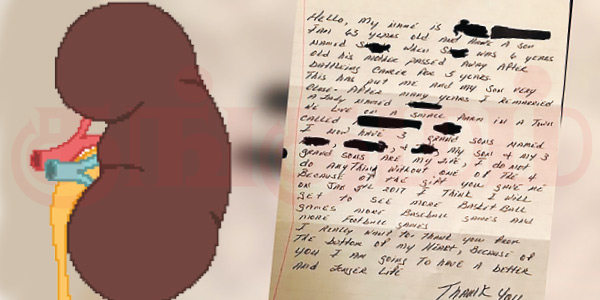 Hello, my name is
I am 63 years old and have a son
named S when S was 6 years
old his mother passed away after
battleing cancer for 3 years.
This has put me and my son very
close. After many years I remarried
a lady named
We live on a small farm in a town
called
I now have 3 grand sons named
, & my son & my 3
grand sons are my life, I do not
do anything without one of the 4
Because of the gift you gave me
on Jan 5th 2017 I think I will
get to see more Basket Ball
games more Baseball games and
more football games
I really want to thank you from
the bottom of my heart, because of
you I am going to have a better
and longer life
Thank You